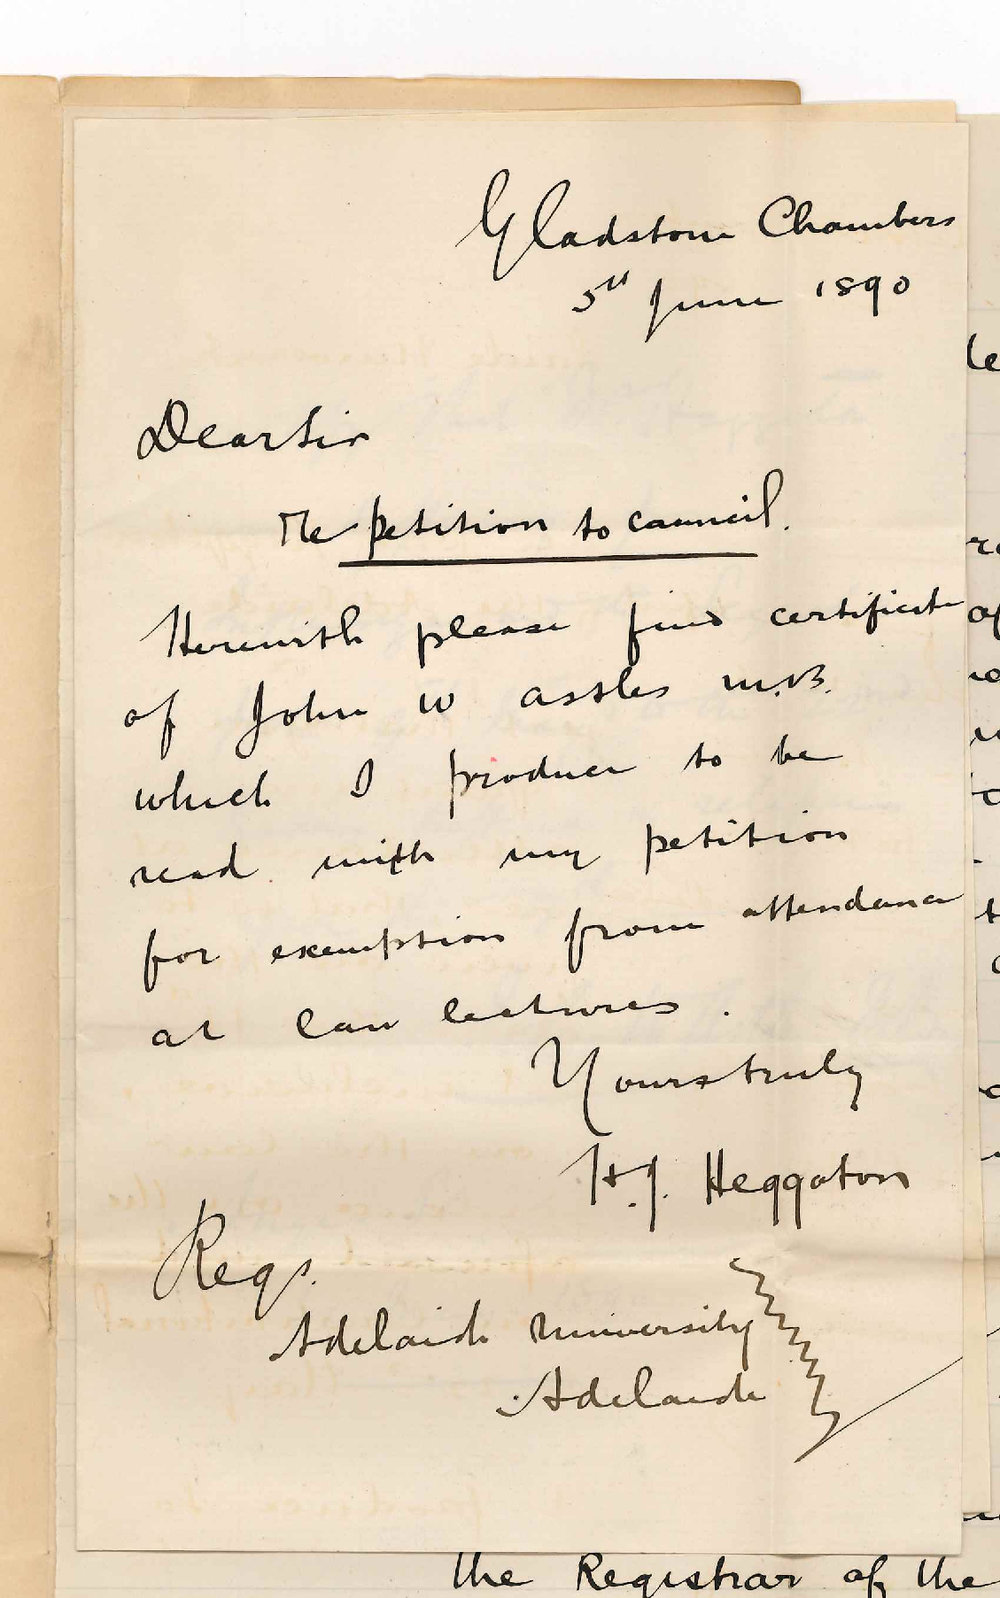 Gladstone Chambers
5th June 1890
Dear Sir
Re petition to council.
Herewith please find certificate
of John W Astles M.B.
which I produce to be
read with my petition
for exemption from attendance
at law lectures.
Yours truly
H. J. Heggaton
Regr.
Adelaide University
Adelaide
the Registrar of the